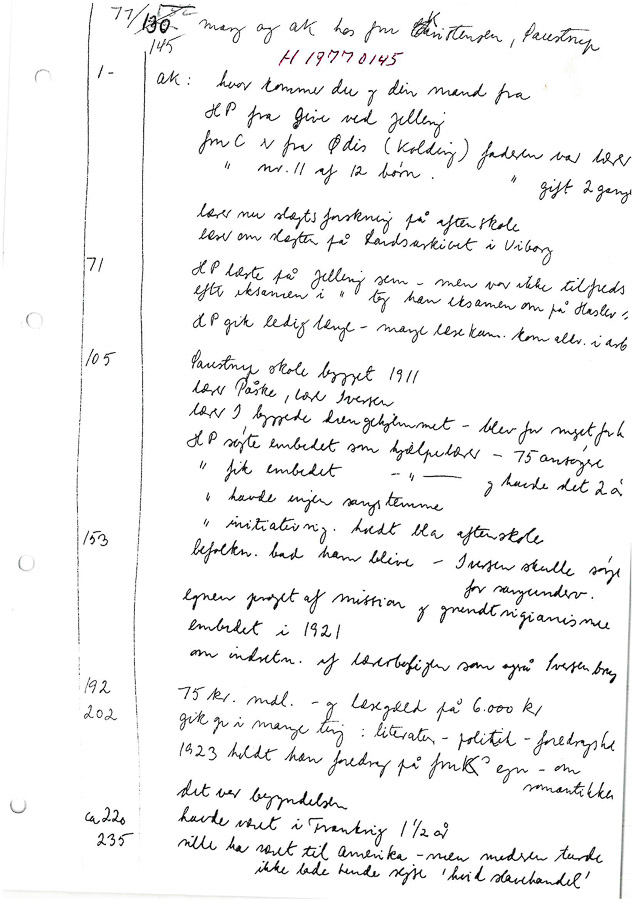 77/130 marg og AK hos fru Kristensen, Paarstrup
145
H 19770145
1- AK: hvor kommer du og din mand fra
HP fra Give ved Jelling
fru C er fra Ødis (Kolding) faderen var lærer
" nr. 11 af 12 børn. " gift 2 gange
lærer nu slægtsforskning på aftenskole
læser om slægten på Landsarkivet i Viborg
71 HP læste på Jelling sem - men var ikke tilfreds
efter eksamen i " tog han eksamen om på Haslev s
HP gik ledig længe - mange læsekam. kom aldr. i arb
105 Paarstrup skole bygget 1911
lærer Påske, lærer Iversen
lærer I byggede drengehjemmet - blev for meget for h
HP søgte embedet som hjælpelærer - 75 ansøgere
" fik embedet - " - og havde det 2 å
" havde ingen sangstemme
" initiativrig. holdt bl a aftenskole
153 befolkn. bad ham blive - Iversen skulle sørge
for sangunderv.
egnen præget af mission og grundtvigianisme
embedet i 1921
om indretn. af lærerboligen som også Iversen brug
192 75 kr. mdl. - og læsegæld på 6.000 kr
202 gik op i mange ting: literatur - politik - foredragsh
1923 holdt han foredrag på fru K's egn - om
romantikken
det var begyndelsen
ca 220 havde været i Frankrig 1 1/2 år
235 ville ha været til Amerika - men moderen turde
ikke lade hende rejse 'hvid slavehandel'